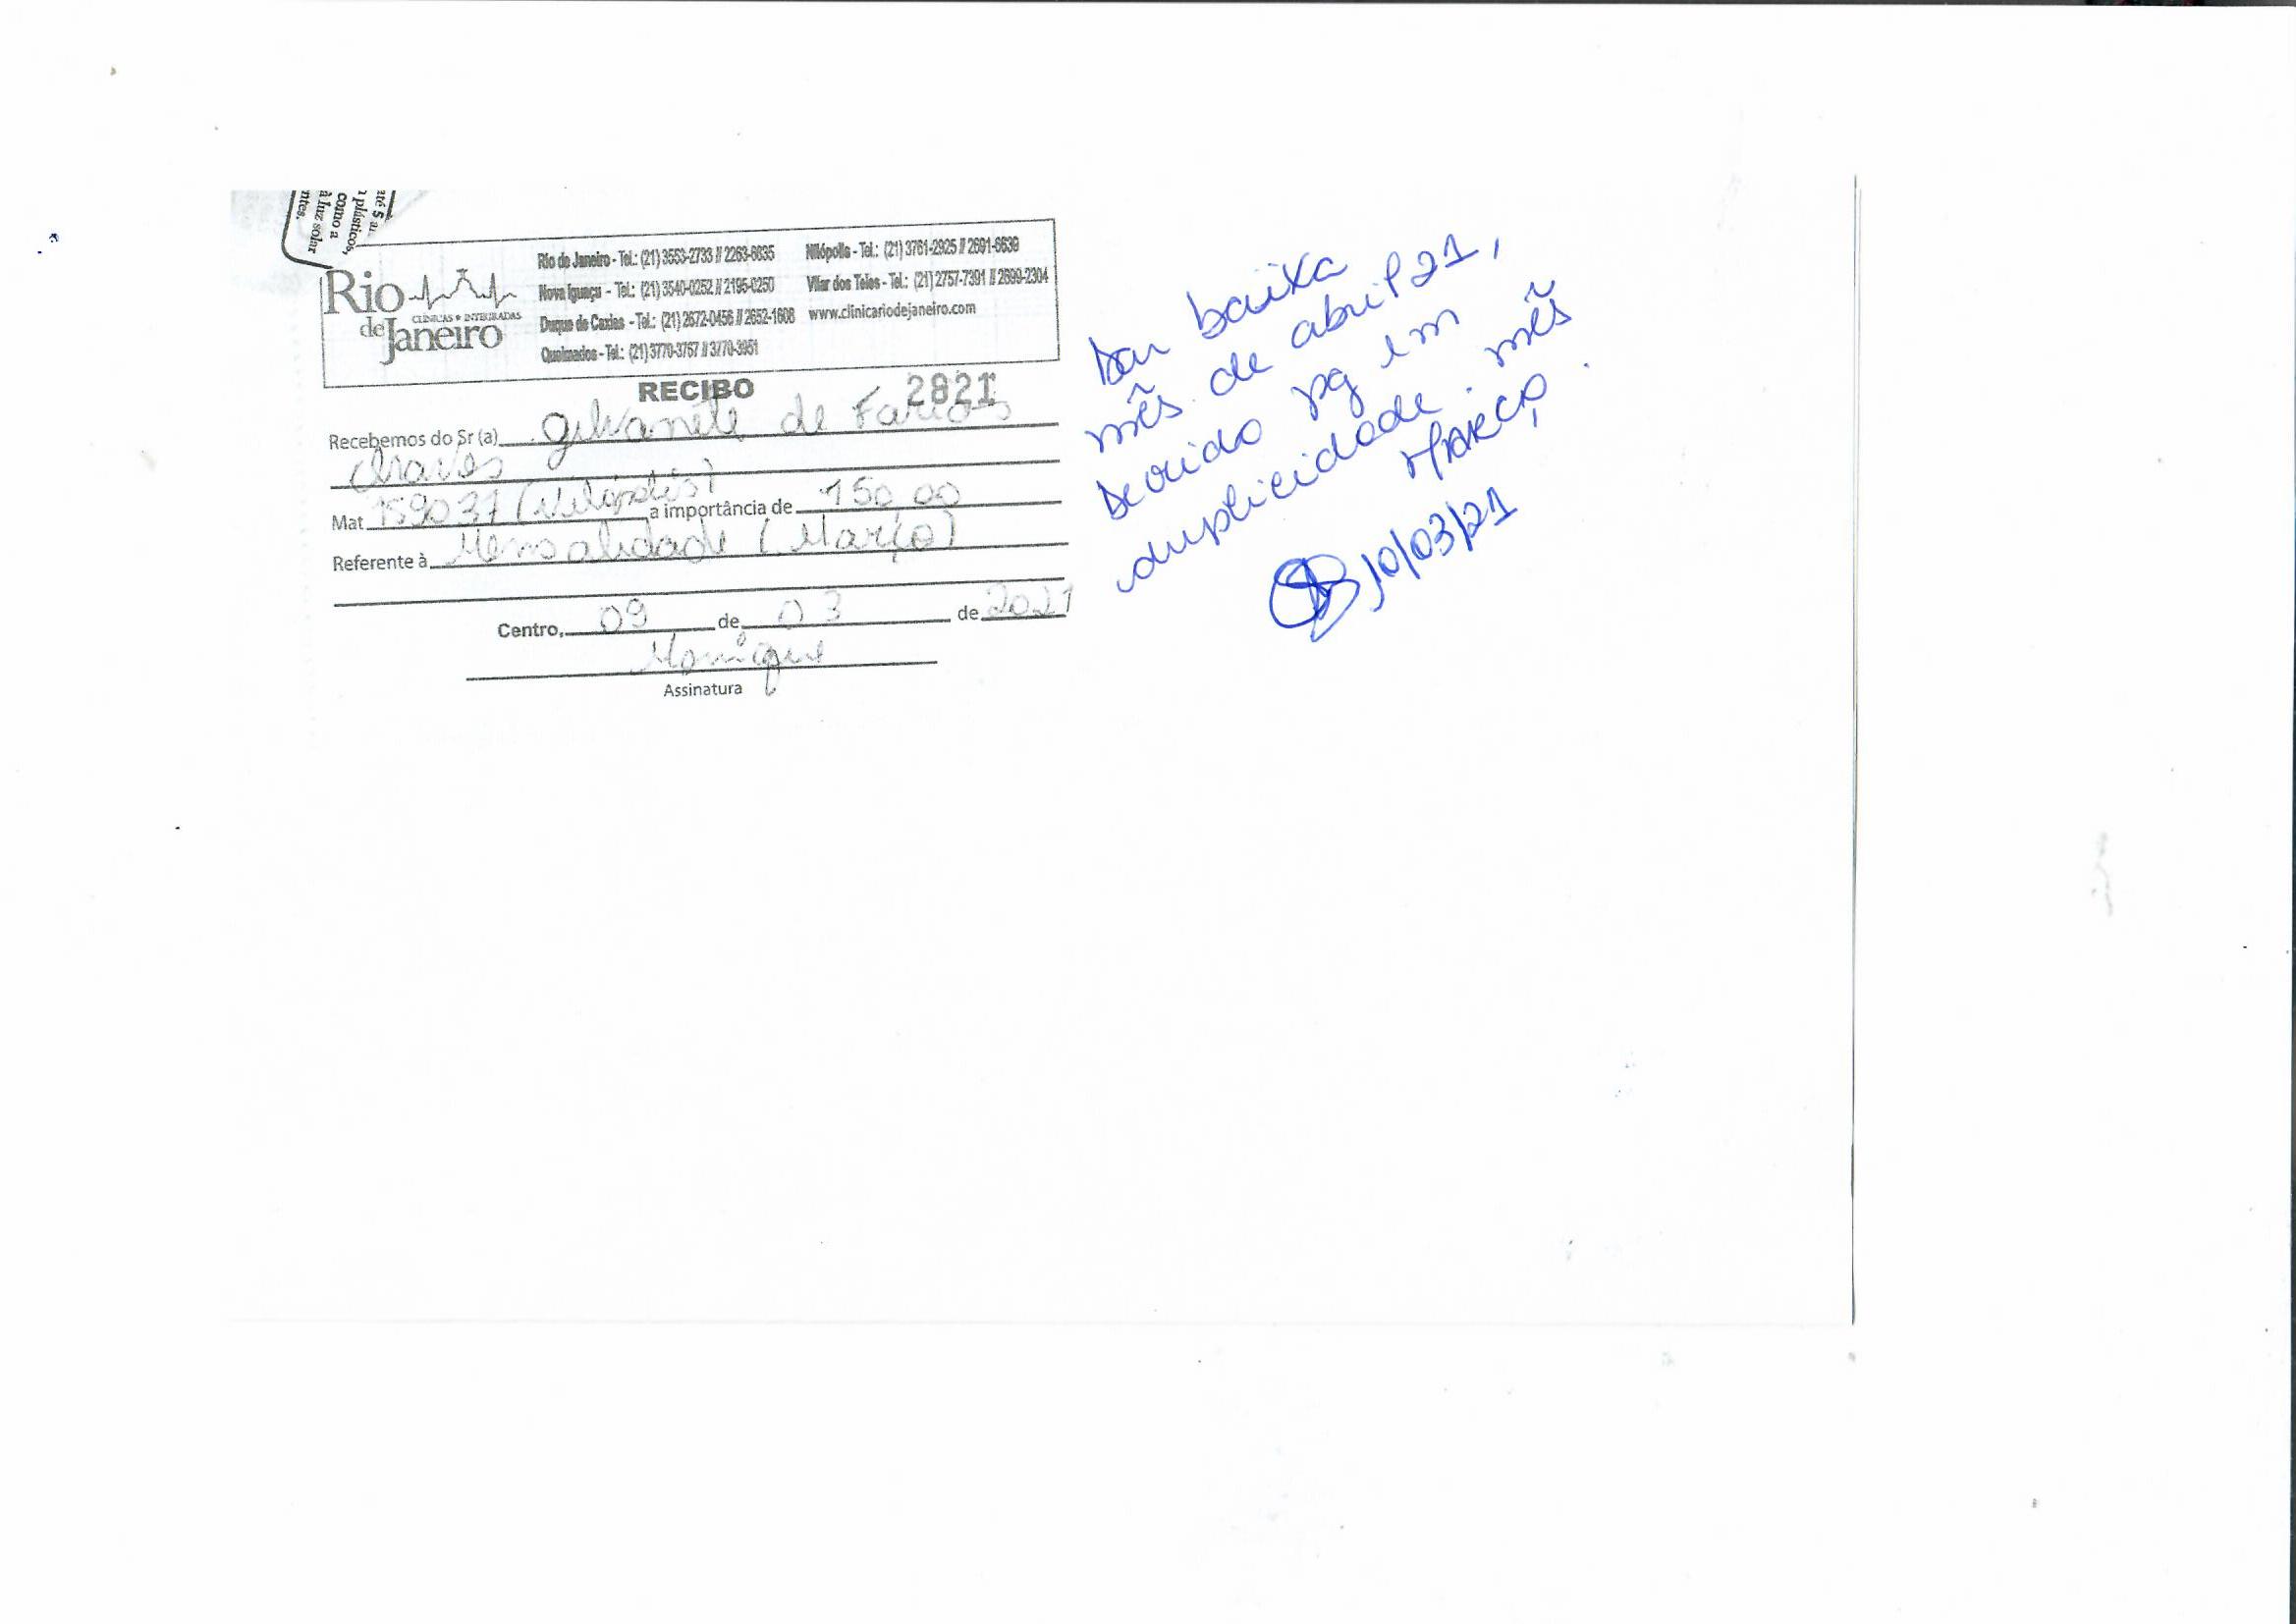 até 5 a
plásticos,
como a
à luz solar
ntes.
Rio
de Janeiro
CLÍNICAS INTEGRADAS
Rio de Janeiro - Tel.: (21) 3553-2733 // 2263-6635
Nova Iguaçu - Tel.: (21) 3540-0252 // 2195-0250
Duque de Caxias - Tel.: (21) 2672-0456 // 2652-1608
Queimados - Tel.: (21) 3770-3757 // 3770-3951
Nilópolis - Tel.: (21) 3761-2925 // 2691-6639
Vilar dos Teles - Tel.: (21) 2757-7391 // 2699-2304
www.clinicariodejaneiro.com
RECIBO 2821
Recebemos do Sr (a) Gilvanete de Farias
Chaves
Mat 159037 (Nilópolis) a importância de 150,00
Referente à Mensalidade (Março)
Centro, 09 de 03 de 2021
Monique
Assinatura
Dar baixa
mês de abril 21,
devido pg em
duplicidade mês
MARÇO.
10/03/21